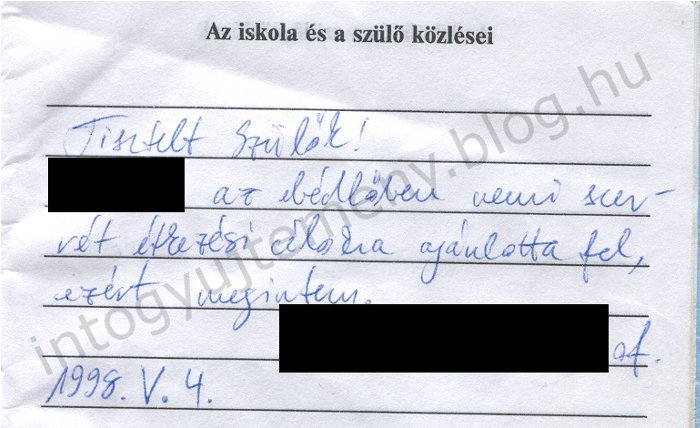 Az iskola és a szülő közlései
Tisztelt Szülők!
az ebédlőben nemi szer-
vét étkezési célokra ajánlotta fel,
ezért megintem.
af.
1998. V. 4.
intogyujtemeny.blog.hu